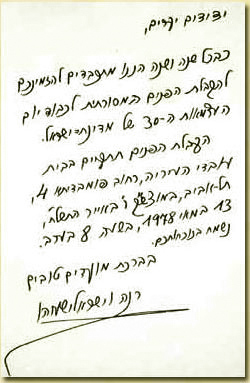 ידידים יקרים,
כבכל שנה ושנה הננו מתכבדים להזמינכם
לקבלת הפנים המסורתית לכבוד יום
העצמאות ה-30 של מדינת-ישראל.
קבלת הפנים תתקיים בבית
עובדי העיריה, רחוב פומבדיתא 4,
תל-אביב, במוצש"ק ו' באייר תשל"ח,
13 במאי 1978, בשעה 8 בערב.
נשמח בנוכחותכם.
בברכת מועדים טובים
רנה וישראל ישעיהו